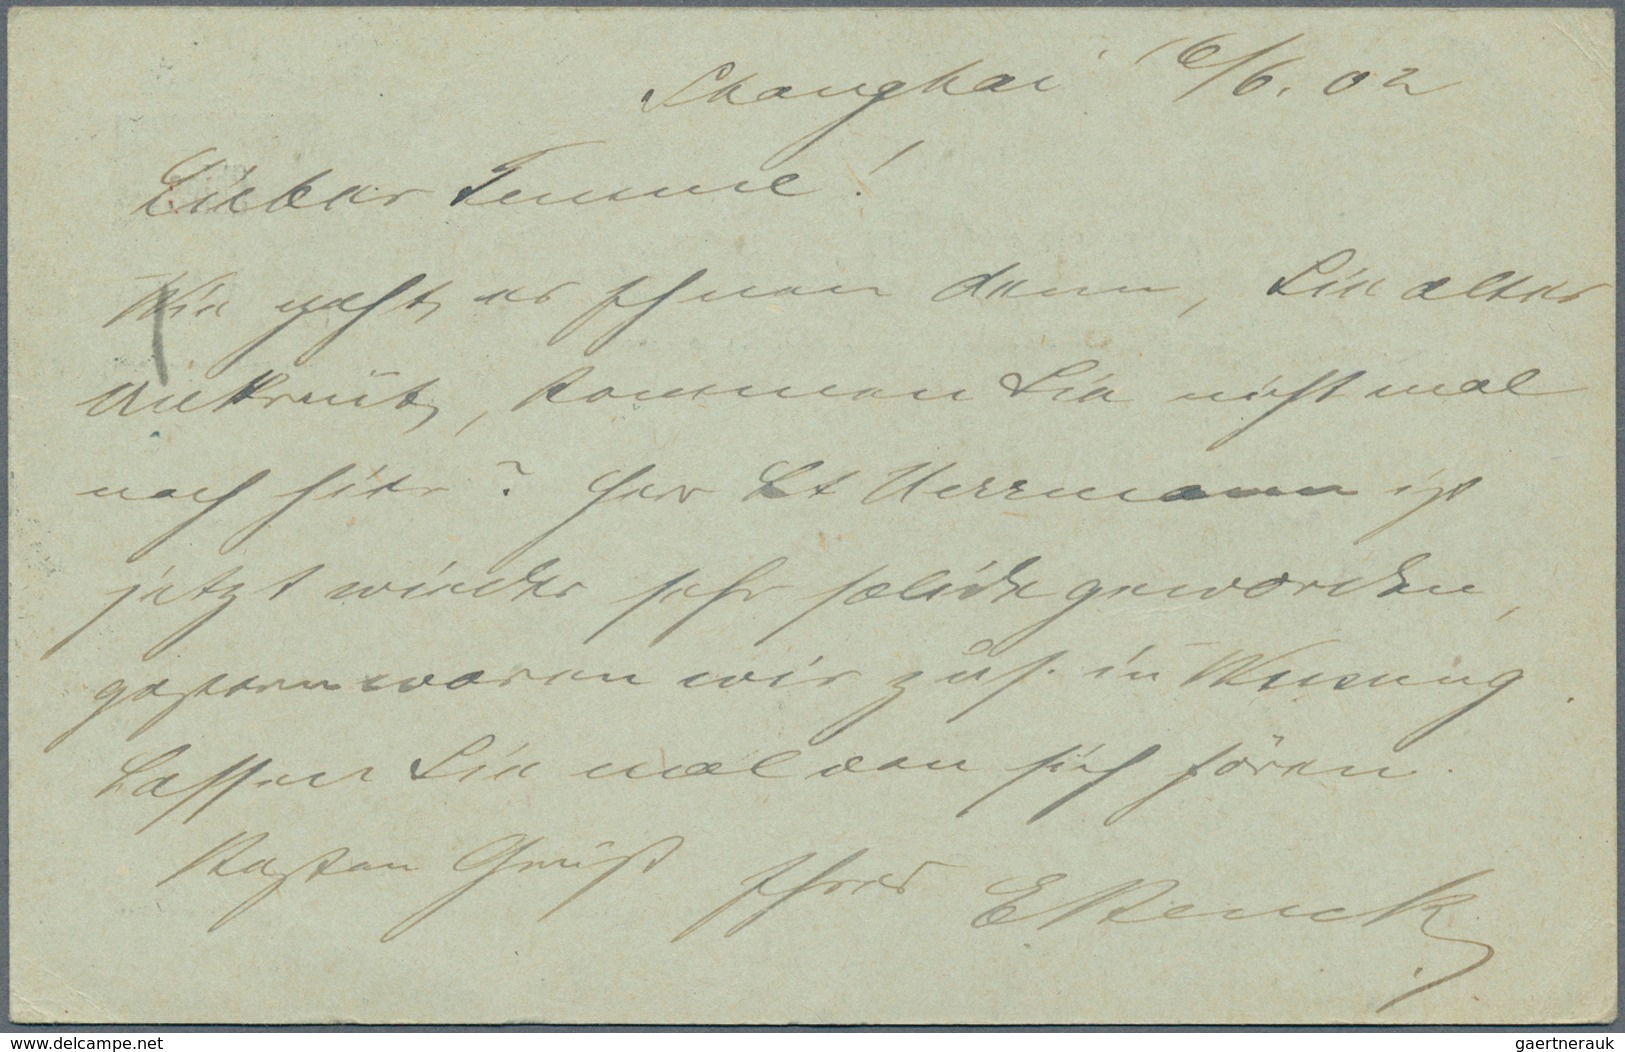 Shanghai 16/6. 02
Lieber Temme!
Wie geht es Ihnen denn, Sie altes
kommen Sie nicht mal
nach hier? Herr Lt Herrmann ist
jetzt wieder sehr solide geworden,
gestern waren wir zus. in Wusung.
Lassen Sie mal von sich hören.
Besten Gruß Ihres
www.delcampe.net
gaertnerauk